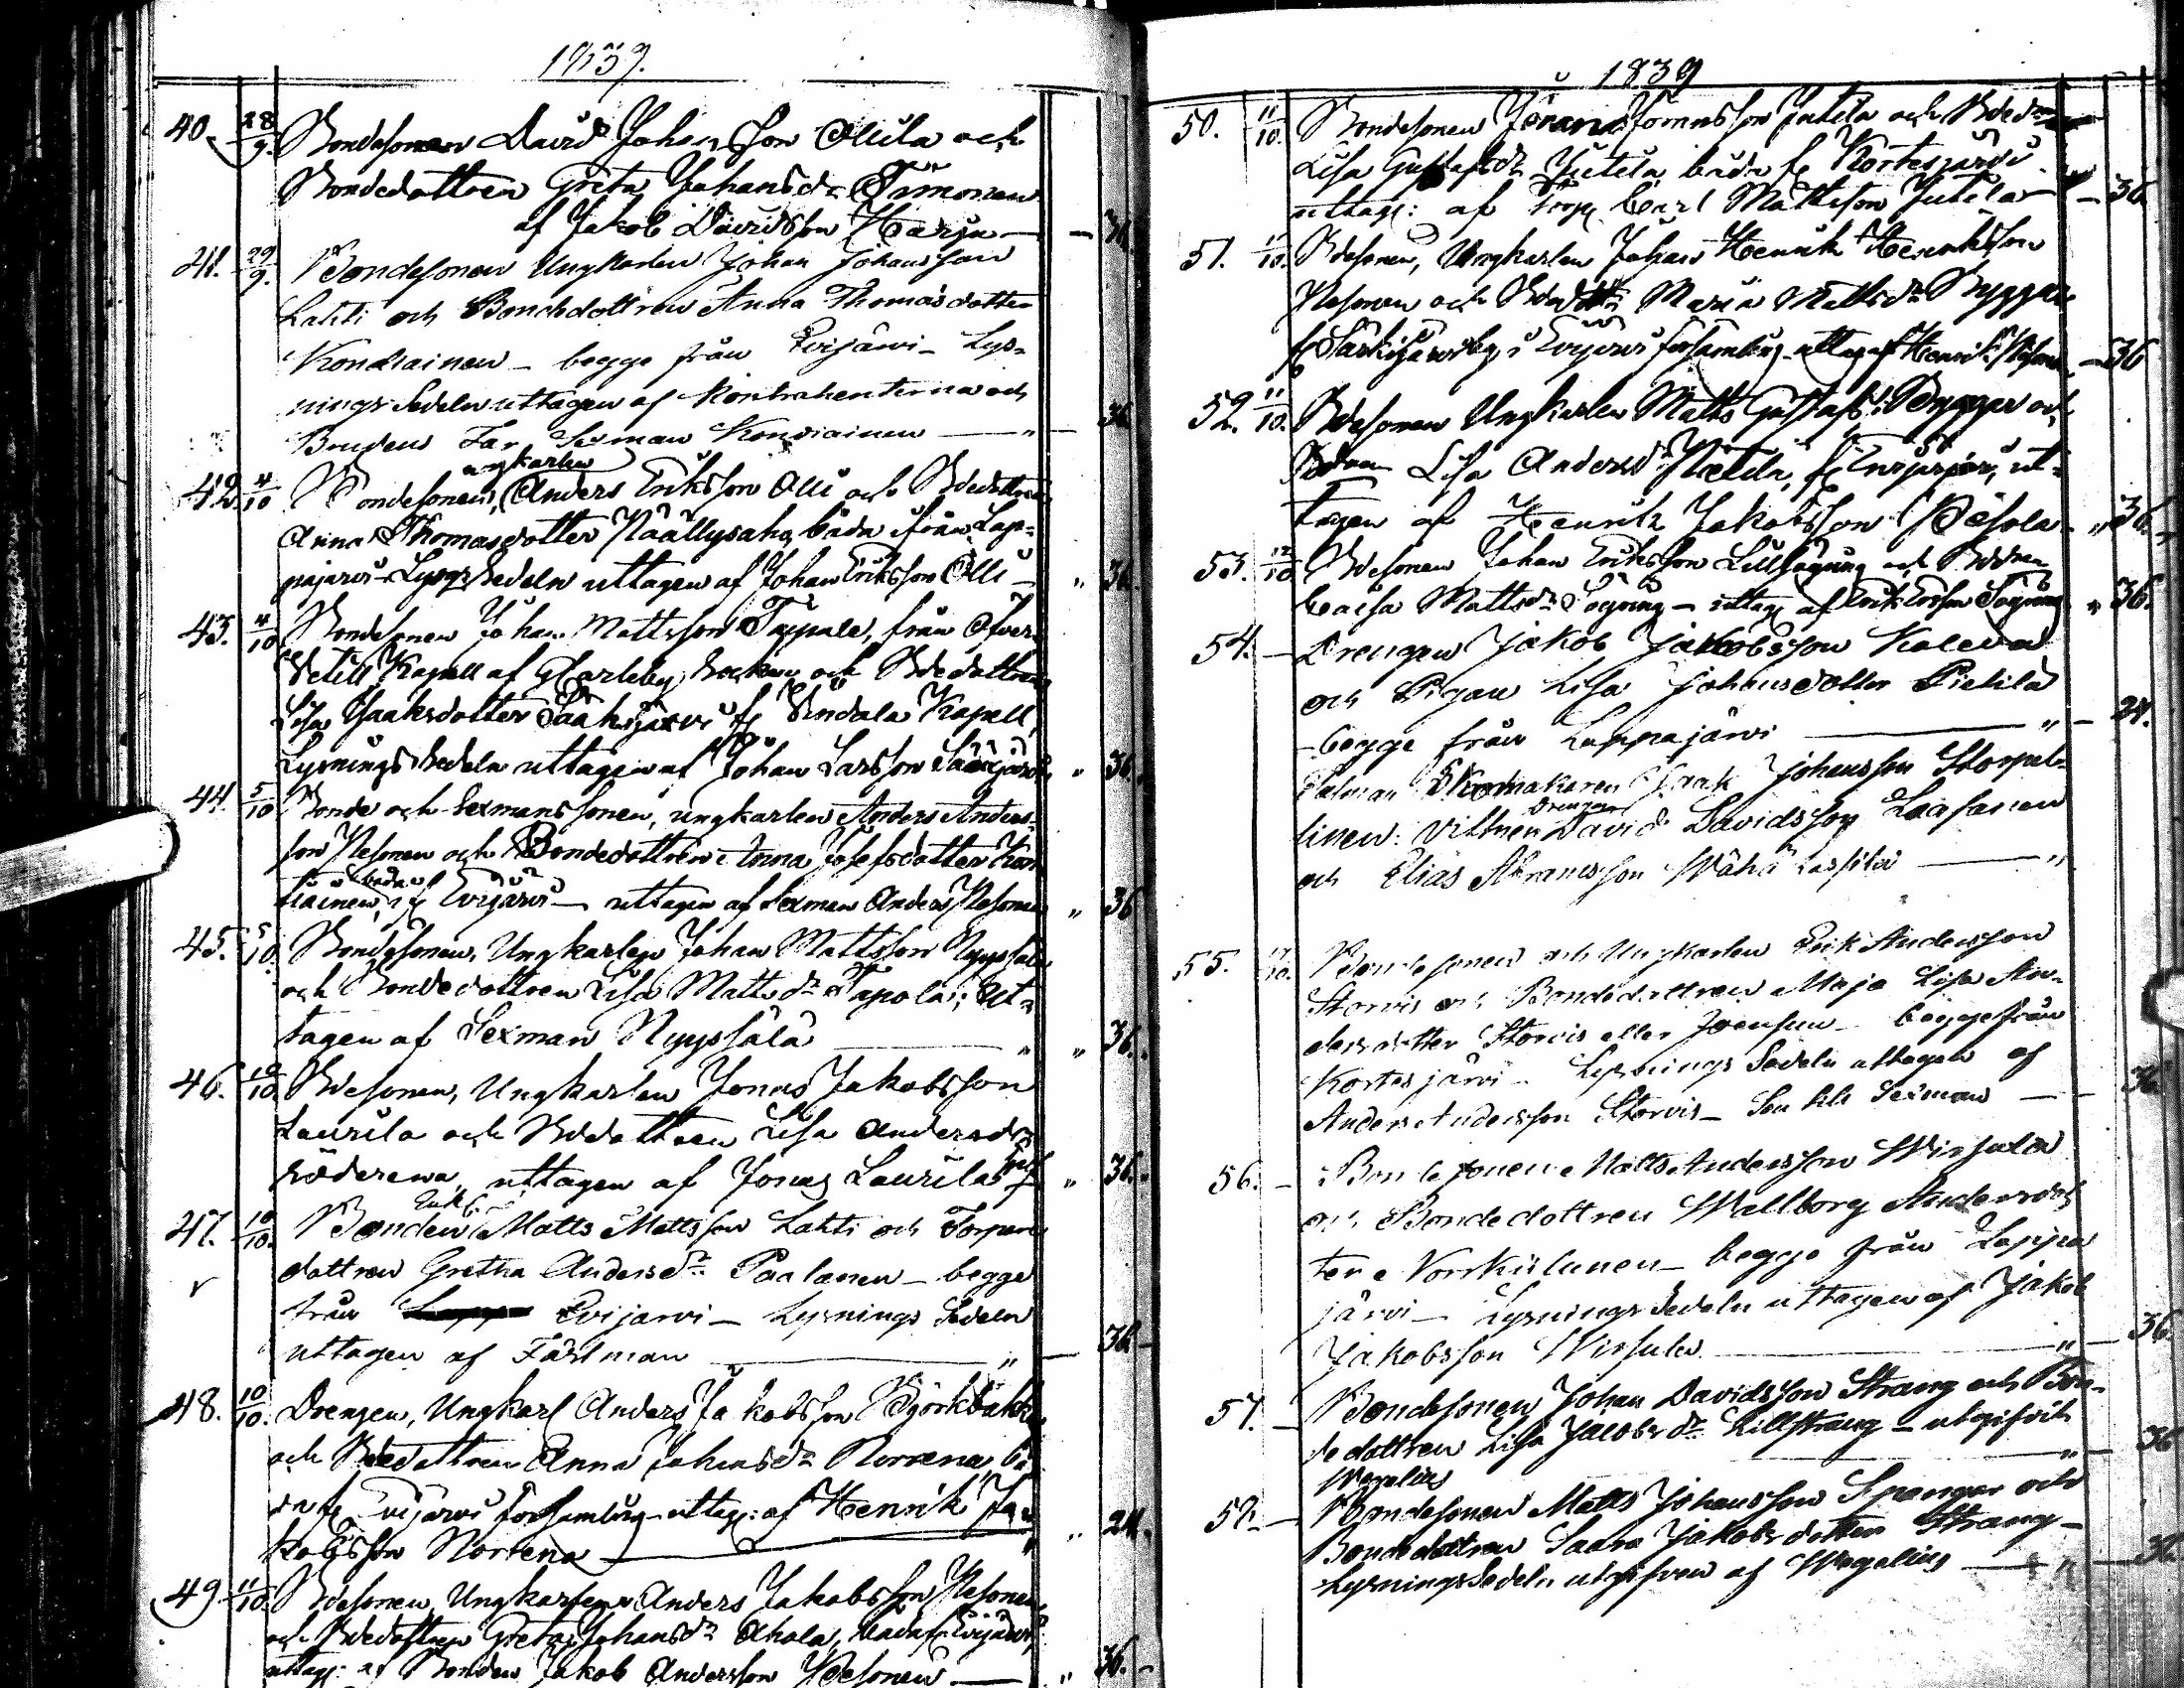 1839.
40. 28/9. Bondesonen David Johansson Ollila och
Bondedottren Greta Johansdr Timonen
af Jakob Davidsson Harju — — 36
41. 29/9. Bondesonen Ungkarlen Johan Johansson
Lahti och Bondedottren Anna Thomasdotter
Kondiainen — begge från Evijärvi — Lys-
nings Sedeln uttagen af Kontrahenterna och
Brudens Far Sexman Kondiainen — " — 36
42. 4/10 Bondesonen, ungkarlen Anders Eriksson Olli och Bdedottren
Anna Thomasdotter båda ifrån Lap-
pajärvi — Lysngs Sedeln uttagen af Johan Eriksson Olli — " 36.
43. 4/10 Bondesonen Johan Mattsson Taipale, från Öfver
Vetill Kapell af GCarleby Socken och Bdedottren
Lisa Isaksdotter Sääksjärvi fr Vindala Kapell,
Lysnings Sedeln uttagen af Johan Larsson Sääxjärvi " 36
44. 5/10 Bonde och Sexmans Sonen, ungkarlen Anders Anders-
son Pesonen och Bondedottren Anna Josefsdotter Kon
tiainen, båda fr Evijärvi — uttagen af Sexman Anders Pesonen " 36
45. 5/10. Bondesonen, Ungkarlen Johan Mattsson Nyyssälä
och Bondedottren Lisa Mattsdr Tapola; Ut-
tagen af Sexman Nyyssälä — " " 36.
46. 10/10 Bdesonen, Ungkarlen Jonas Jakobsson
Laurila och Bdedottren Lisa Andersdr
Söderena, uttagen af Jonas Laurila sjelf " 36.
47. 10/10. Bonden Enkl. Matts Mattsson Lahti och Torpare
dottren Gretha Andersdr Paalanen — begge
från Evijärvi — Lysnings Sedeln
uttagen af Fästman — " — 36 —
48. 10/10. Drengen, Ungkarl Anders Jakobsson Björkbakka
och Bdedottren Anna Johansdr Norrena, bå
da fr Evijärvi församling — uttag: af Henrik Ja-
kobsson Norrena — " " 24.
49. 11/10. Bdesonen, Ungkarlen Anders Jakobsson Pesonen,
och Bdedottren Greta Johansdr Ahola, båda fr Evijärvi,
uttag: af Bonden Jakob Andersson Pesonen — " 36. —
1839
50. 11/10. Bondesonen Jöran Jöransson Jutila och Bdedr
Lisa Gustafsdr Jutila båda fr Kortesjärvi
uttag: af Torp: Carl Mattsson Jutila — — 36
51. 11/10. Bdesonen, Ungkarlen Johan Henrik Henriksson
Pesonen och Bdedottr Maria Mattsdr Byggar
fr Särkijärviby i Evijärvi församling — uttag af Henrik Pesonen — 36
52. 11/10. Bdesonen Ungkarlen Matts Gustafs: Byggar och
Lisa Andersdr fr Evijärvi, ut-
tagen af Henrik Jakobsson — " 36.
53. 12/10 Bdesonen Johan Eriksson Lillsögning och Bddren
Caisa Mattsdr Sögning — uttag af Erik Ersson Sögning " 36.
54. — Drengen Jakob Jakobsson Kaleva
och Pigan Lisa Johansdotter Pietilä
— begge från Lappajärvi — " — 24.
Talman Skomakaren Isaak Johansson Stopel-
linen. Vittnen Drengen David Davidsson Laasanen
och Elias Abramsson Wähä Lassila — "
55. /10. Bondesonen och Ungkarlen Erik Andersson
Storvis och Bondedottren Maja Lisa An-
dersdotter Storvis eller Joensuu — begge från
Kortesjärvi — Lysnings Sedeln uttagen af
Anders Andersson Storvis — Son till Sexman — — 36
56. — Bondesonen Matts Andersson Wirsula
och Bondedottren Wallborg Andersdot
ter — begge från Lappa
järvi — Lysnings Sedeln uttagen af Jakob
Jakobsson Wirsula — " — 36.
57. — Bondesonen Johan Davidsson Strang och Bon-
dedottren Lisa Jacobsdr Lillstrang — utgifvit
Wegelius — " — 36
58. — Bondesonen Matts Johansson Spangar och
Bondedottren Saara Jakobsdotter Strang —
Lysnings Sedeln utgifven af Wegelius — " — 36